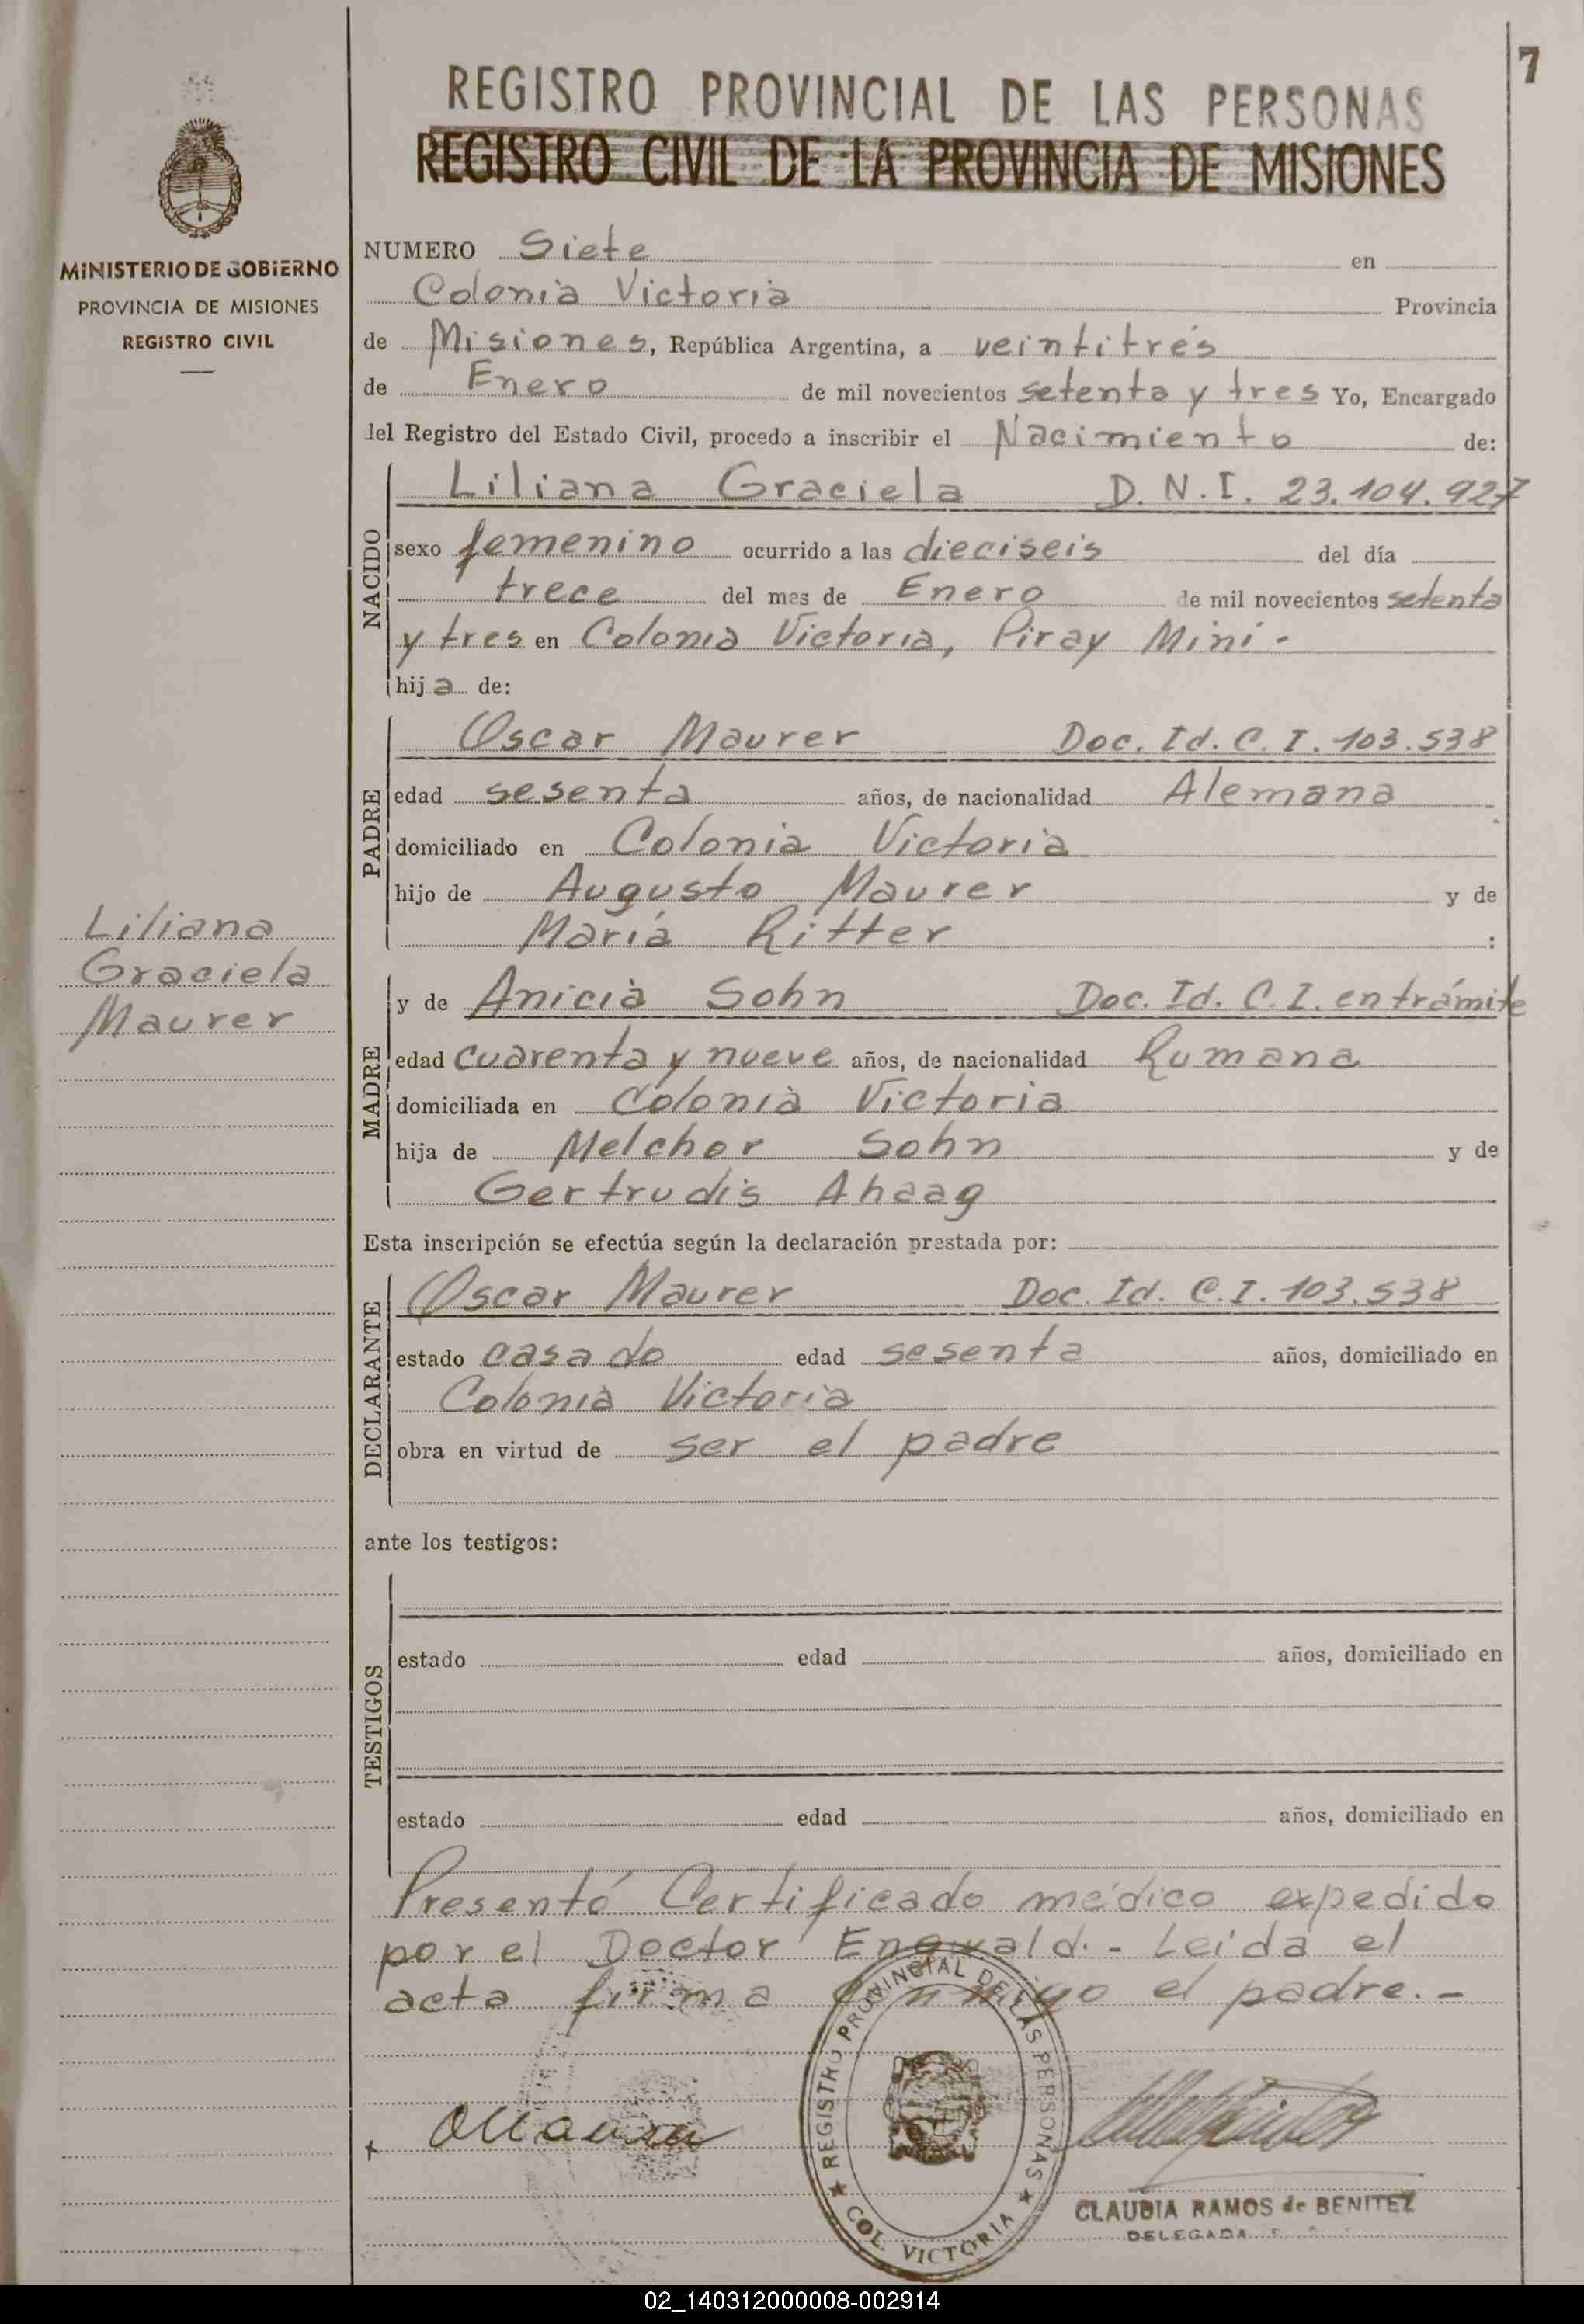 7
REGISTRO PROVINCIAL DE LAS PERSONAS
REGISTRO CIVIL DE LA PROVINCIA DE MISIONES
MINISTERIO DE GOBIERNO
PROVINCIA DE MISIONES
REGISTRO CIVIL
NUMERO Siete en
Colonia Victoria Provincia
de Misiones, República Argentina, a veintitrés
de Enero de mil novecientos setenta y tres Yo, Encargado
del Registro del Estado Civil, procedo a inscribir el Nacimiento de:
NACIDO
Liliana Graciela D.N.I. 23.104.927
sexo femenino ocurrido a las dieciseis del día
trece del mes de Enero de mil novecientos setenta
y tres en Colonia Victoria, Piray Mini -
hija de:
PADRE
Oscar Maurer Doc. Id. C.I. 103.538
edad sesenta años, de nacionalidad Alemana
domiciliado en Colonia Victoria
hijo de Augusto Maurer y de
María Ritter :
Liliana
Graciela
Maurer
MADRE
y de Anicia Sohn Doc. Id. C.I. en trámite
edad cuarenta y nueve años, de nacionalidad Rumana
domiciliada en Colonia Victoria
hija de Melchor Sohn y de
Gertrudis Ahaag
Esta inscripción se efectúa según la declaración prestada por:
DECLARANTE
Oscar Maurer Doc. Id. C.I. 103.538
estado casado edad sesenta años, domiciliado en
Colonia Victoria
obra en virtud de ser el padre
ante los testigos:
TESTIGOS
estado edad años, domiciliado en
estado edad años, domiciliado en
Presentó Certificado médico expedido
por el Doctor Engwald. - Leida el
acta firma conmigo el padre. -
OMaurer
REGISTRO PROVINCIAL DE LAS PERSONAS
★ COL. VICTORIA ★
CLAUDIA RAMOS de BENITEZ
DELEGADA
02_140312000008-002914